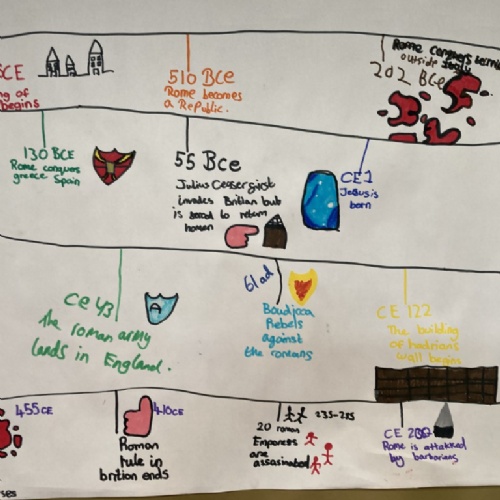 CE
ng of
begins
510 BCe
Rome becomes
a Republic.
Rome conquers
outside Italy
202 BCe
130 BCE
Rome conquers
greece Spain
55 Bce
Julius Ceaser first
invades Britian but
is to return
CE 1
Jesus is
born
CE 43
the roman army
lands in England.
61 ad
Boudjcca
Rebels
against
the romans
CE 122
The building
of hadrians
wall begins
455CE
ses
410CE
Roman
rule in
brition ends
235-285
20 roman
Emperors
are
assasinated
CE
Rome is attakked
by barbarians